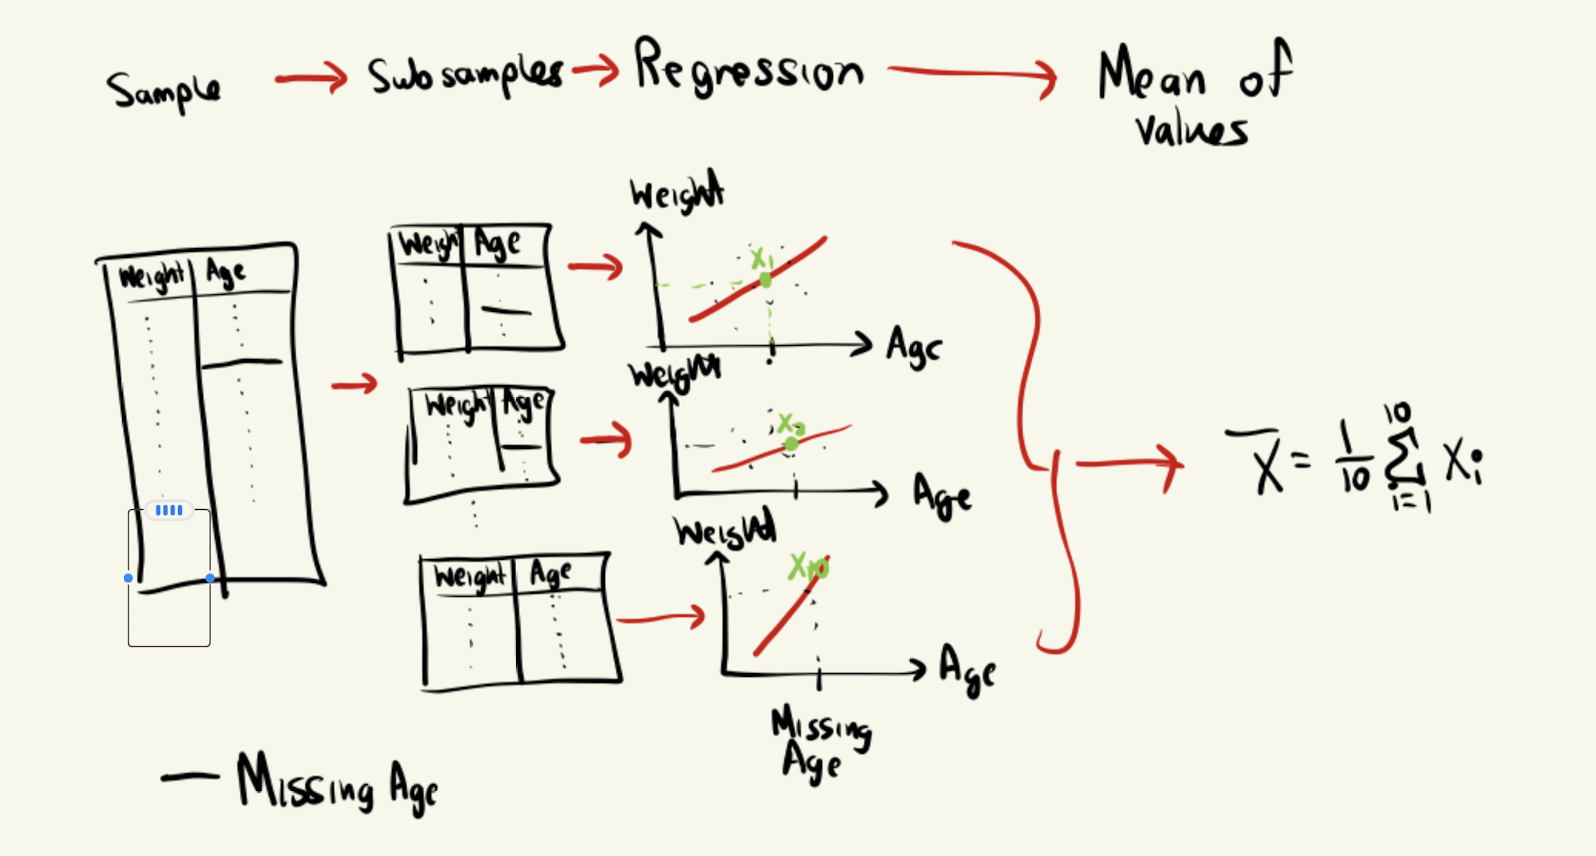 Sample → Subsamples → Regression → Mean of
values
Weight Age
Weight Age
Weight
X1
Age
Weight Age
Weight
X2
Age
Weight Age
Weight
X10
Age
Missing
Age
X̄ = 1/10 10 Σ i=1 Xi
— Missing Age